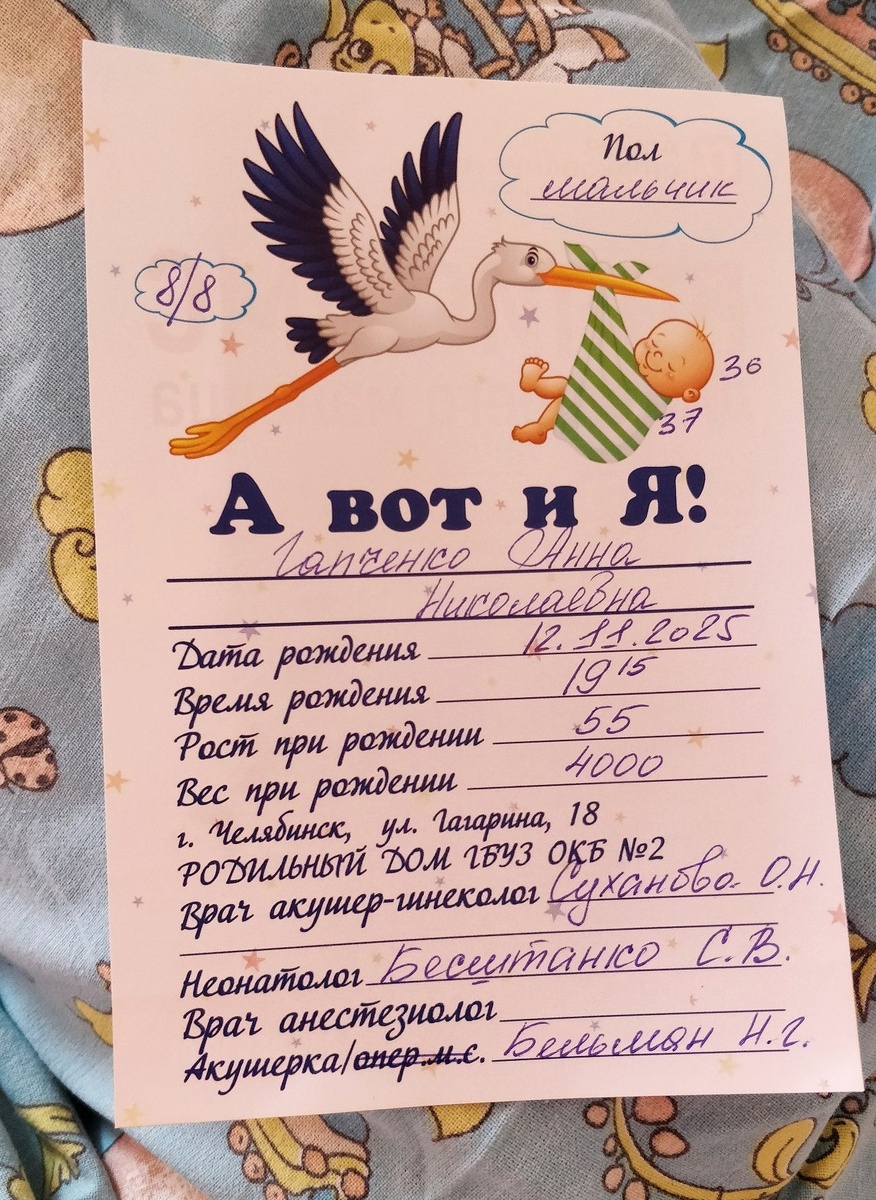 Пол
мальчик
8/8
36
37
А вот и Я!
Гапченко Анна
Николаевна
Дата рождения 12.11.2025
Время рождения 19 15
Рост при рождении 55
Вес при рождении 4000
г. Челябинск, ул. Гагарина, 18
РОДИЛЬНЫЙ ДОМ ГБУЗ ОКБ №2
Врач акушер-гинеколог Суханова О.Н.
Неонатолог Бесштанко С.В.
Врач анестезиолог
Акушерка/опер.м.с. Бельман Н.Г.